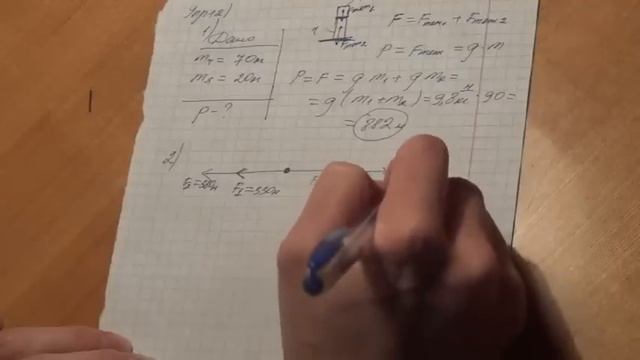 Упр 12)
1) Дано
m₁ = 70кг
m₂ = 20кг
P - ?
F = Fтяж1 + Fтяж2
P = Fтяж = g · m
P = F = g m₁ + g m₂ =
= g (m₁ + m₂) = 9,8 Н/кг · 90 =
= 882н
2)
F₂=550н